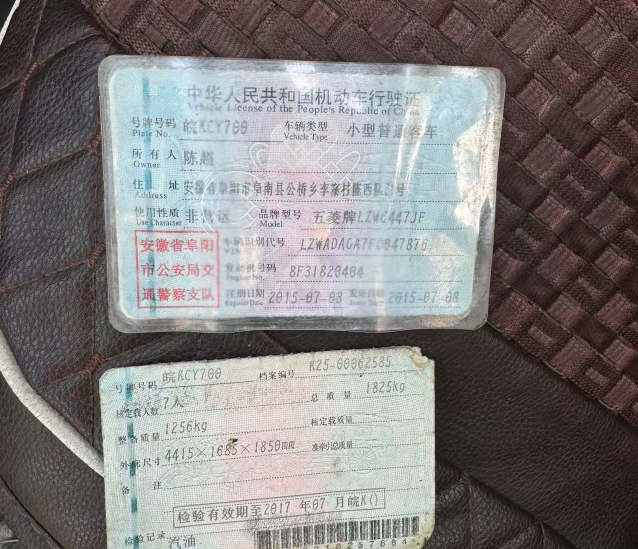 中华人民共和国机动车行驶证
Vehicle License of the People's Republic of China
号牌号码 皖KCY700 车辆类型 小型普通客车
Plate No. Vehicle Type
所有人 陈超
Owner
住址 安徽省阜阳市阜南县公桥乡李寨村陈西队
Address
使用性质 非营运 品牌型号 五菱牌LZW6447JF
Use Character Model
安徽省阜阳
市公安局交
通警察支队
车辆识别代号 LZWADAGA7FC847876
VIN
发动机号码 8F31820464
Engine No.
注册日期 2015-07-08 发证日期 2015-07-08
Register Date
号牌号码 皖KCY700 档案编号 K25-00062585
核定载人数 7人 总质量 1825kg
整备质量 1256kg 核定载质量
外廓尺寸 4415×1685×1850mm 准牵引总质量
备注
检验有效期至2017年07月皖K()
检验记录 汽油